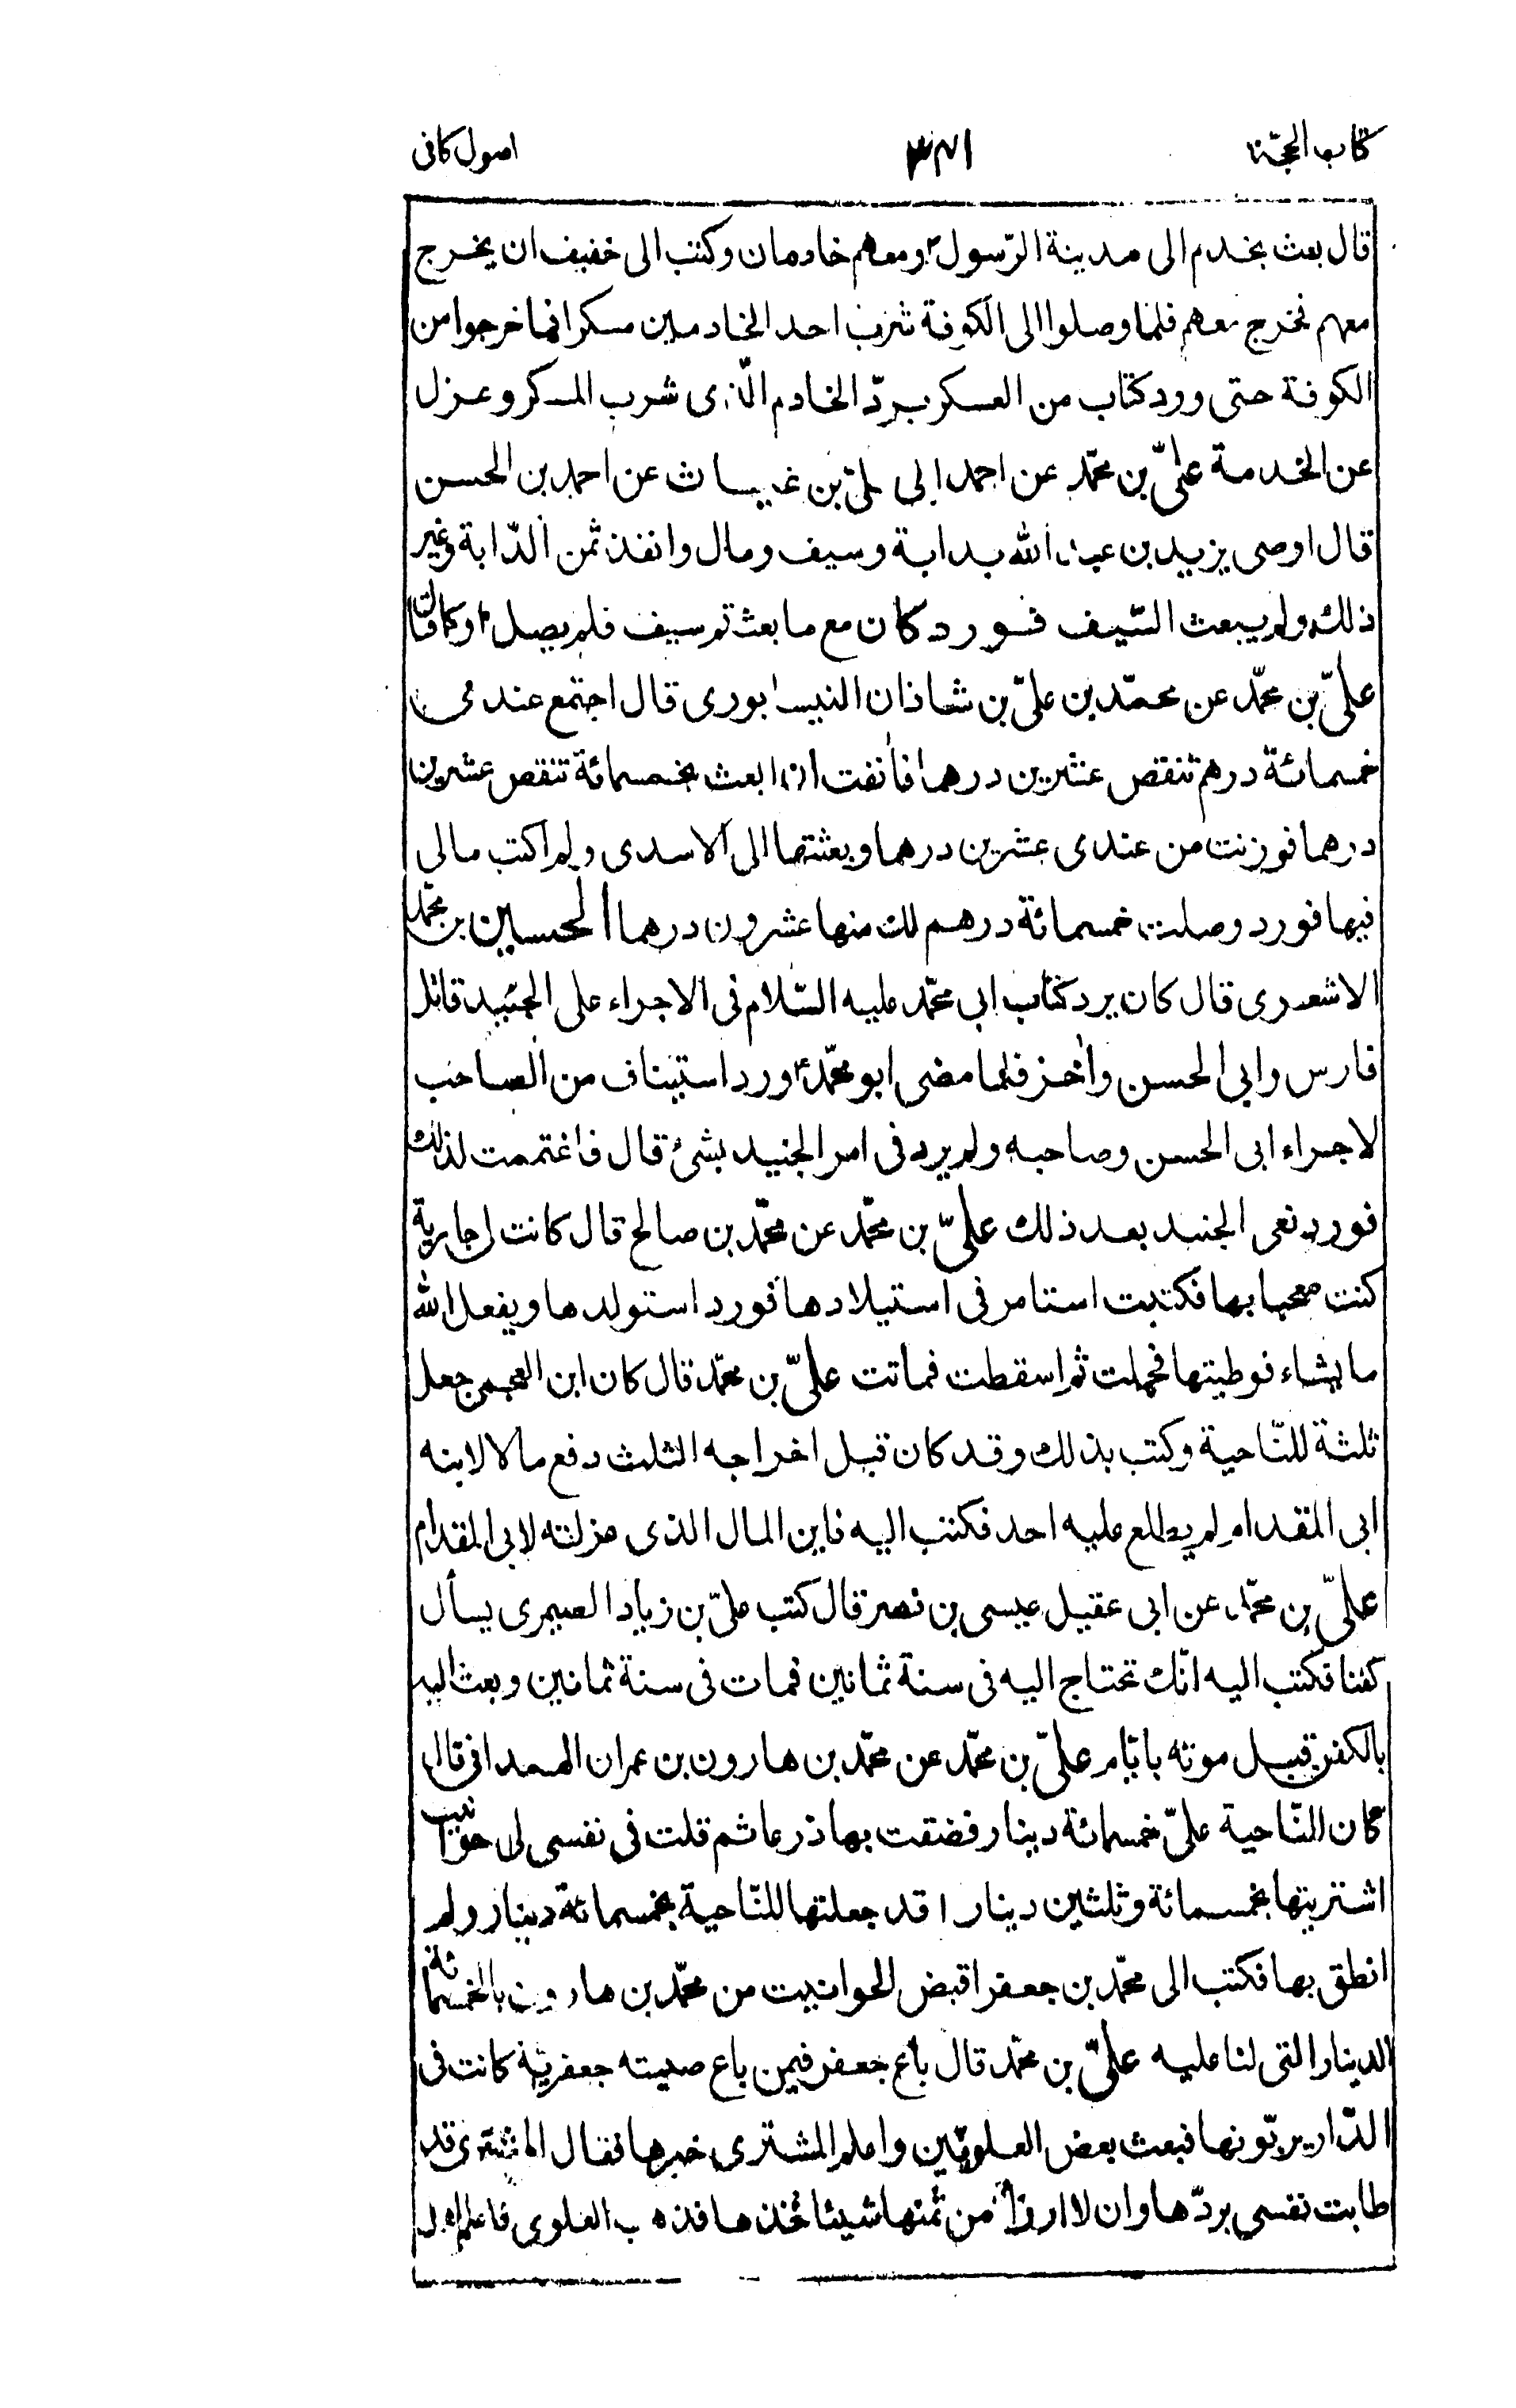 كتاب الحجّة ٣٤١ اصول كافى
قال بعث بخدم الى مدينة الرّسول ص ومعهم خادمان وكتب الى خفيف ان يخرج
معهم فخرج معهم فلمّا وصلوا الى الكوفة شرب احد الخادمين مسكرا فما خرجوا من
الكوفة حتى ورد كتاب من العسكر بردّ الخادم الّذى شرب المسكر وعزل
عن الخدمة علىّ بن محمّد عن احمد ابى علىّ بن غياث عن احمد بن الحسن
قال اوصى يزيد بن عبد الله بدابة وسيف ومال وانفذ ثمن الدّابة وغير
ذلك ولم يبعث السّيف فورد كان مع ما بعثتم سيف فلم يصل او كما قال
علىّ بن محمّد عن محمّد بن علىّ بن شاذان النيسابورى قال اجتمع عندى
خمسمائة درهم تنقص عشرين درهما فأنفت ان ابعث بخمسمائة تنقص عشرين
درهما فوزنت من عندى عشرين درهما وبعثتها الى الاسدى ولم اكتب مالى
فيها فورد وصلت خمسمائة درهم لك منها عشرون درهما الحسين بن محمّد
الاشعرى قال كان يرد كتاب ابى محمّد عليه السّلام فى الاجراء على الجنيد قاتل
فارس وابى الحسن وأخر فلما مضى ابو محمّد ع ورد استيناف من الصاحب
لاجراء ابى الحسن وصاحبه ولم يرد فى امر الجنيد بشئ قال فاغتممت لذلك
فورد نعى الجنيد بعد ذلك علىّ بن محمّد عن محمّد بن صالح قال كانت لى جارية
كنت معجبا بها فكتبت استامر فى استيلادها فورد استولدها ويفعل الله
ما يشاء فوطيتها فحملت ثم اسقطت فماتت علىّ بن محمّد قال كان ابن العجمى جعل
ثلثة للنّاحية وكتب بذلك وقد كان قبل اخراجه الثلث دفع مالا لابنه
ابى المقدام لم يطلع عليه احد فكتب اليه فاين المال الذى عزلته لابى المقدام
علىّ بن محمّد عن ابى عقيل عيسى بن نصر قال كتب علىّ بن زياد الصيمرى يسأل
كفنا فكتب اليه انّك تحتاج اليه فى سنة ثمانين فمات فى سنة ثمانين وبعث اليه
بالكفن قبل موته بايّام علىّ بن محمّد عن محمّد بن هارون بن عمران الهمدانى قال
كان للنّاحية علىّ خمسمائة دينار فضقت بها ذرعا ثم قلت فى نفسى لى حوانيت
اشتريتها بخمسمائة وثلثين دينارا قد جعلتها للنّاحية بخمسمائة دينار ولم
انطق بها فكتب الى محمّد بن جعفر اقبض الحوانيت من محمّد بن هارون بالخمسمائة
الدينار التى لنا عليه علىّ بن محمّد قال باع جعفر فيمن باع صبيته جعفريّة كانت فى
الدّار يربّونها فبعث بعض العلويّين واعلم المشترى خبرها فقال المشترى قد
طابت نفسى بردّها وان لا ارزأ من ثمنها شيئا فخذها فذهب العلوى فاعلم اهل